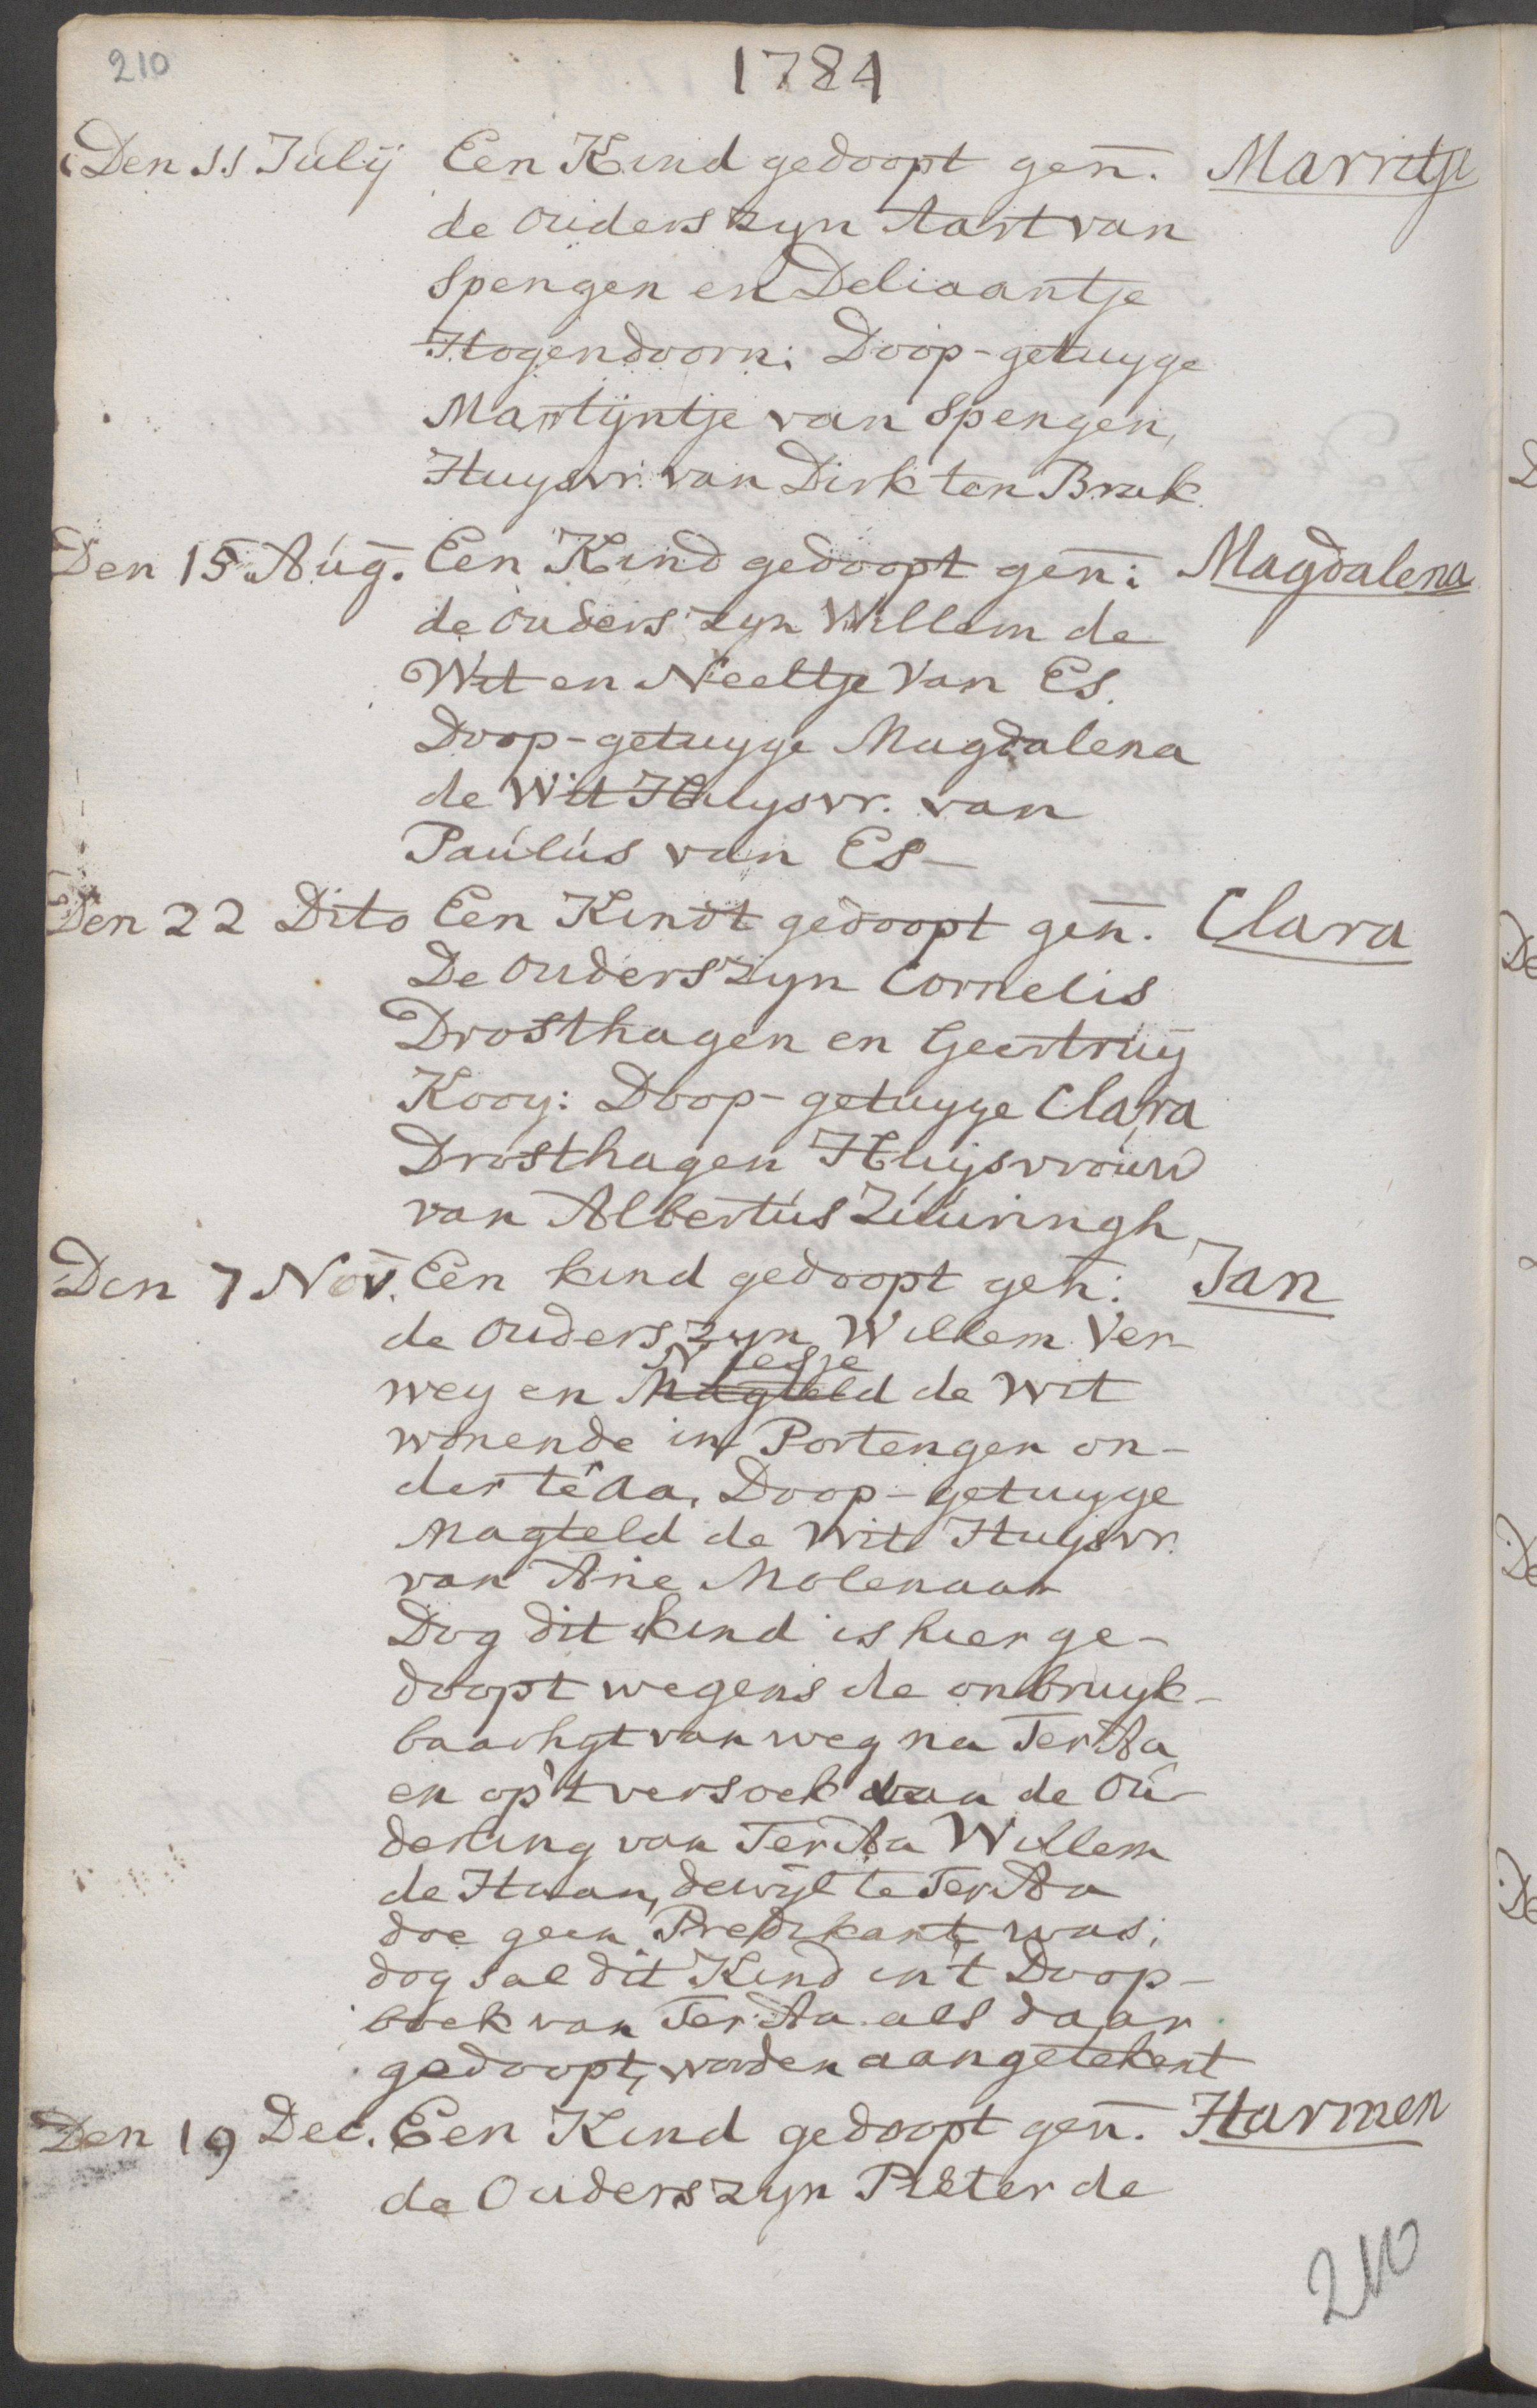 210
1784
Den 11 Julij Een Kind gedoopt gen. Marritje
de ouders zyn Aart van
Spengen en Deliaantje
Hogendoorn; Doop-getuyge
Martijntje van Spengen,
Huysvr. van Dirk ten Brak.
Den 15 Aug. Een Kind gedoopt gen: Magdalena
de ouders zyn Willem de
Wit en Neeltje Van Es.
Doop-getuyge Magdalena
de Wit Huysvr. van
Paulus van Es-
Den 22 Dito Een Kindt gedoopt gen. Clara
De Ouders zyn Cornelis
Drosthagen en Geertruij
Kooy: Doop-getuyge Clara
Drosthagen Huijsvrouw
van Albertus Zuuringh
Den 7 Nov. Een kind gedoopt gen: Jan
de Ouders zyn Willem Ver-
Niesje
wey en Magteld de Wit
wonende in Portengen on-
der te Aa, Doop-getuyge
Magteld de Wit Huijsvr.
van Arie Molenaar
Dog dit kind is hier ge-
doopt wegens de onbruyk-
baarhyt van weg na Ter Aa
en op't versoek van de Ou-
derling van Ter Aa Willem
de Haan, dewijl te Ter Aa
doe geen Predikant was;
dog sal dit Kind in't Doop-
boek van Ter Aa als daar
gedoopt, worden aangetekent
Den 19 Dec. Een Kind gedoopt gen. Harmen
de Ouders zyn Pieter de
210